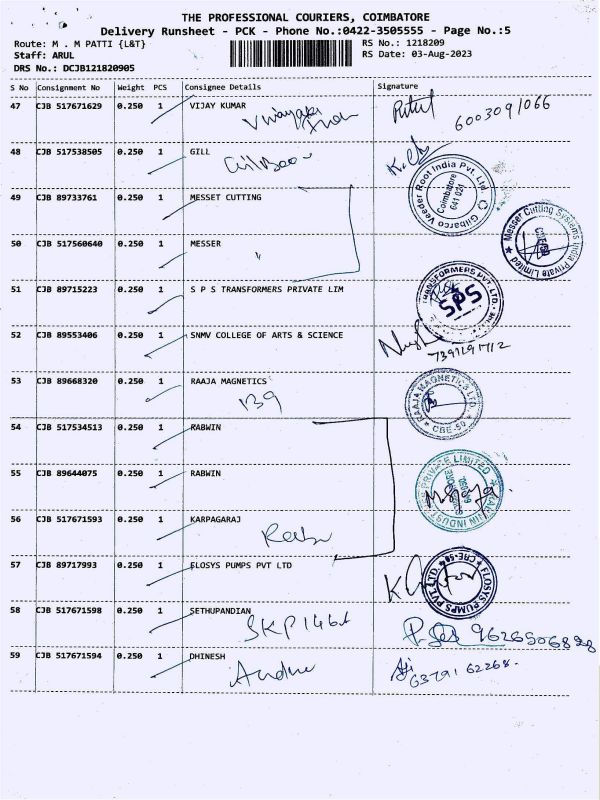 THE PROFESSIONAL COURIERS, COIMBATORE
Delivery Runsheet - PCK - Phone No.:0422-3505555 - Page No.:5
Route: M . M PATTI {L&T} RS No.: 1218209
Staff: ARUL RS Date: 03-Aug-2023
DRS No.: DCJB121820905
S No Consignment No Weight PCS Consignee Details Signature
47 CJB 517671629 0.250 1 VIJAY KUMAR
6003091066
48 CJB 517538505 0.250 1 GILL
Gilbarco Veeder Root India Pvt. Ltd.
Coimbatore
641 021
49 CJB 89733761 0.250 1 MESSET CUTTING
Messer Cutting Systems India Private Limited
50 CJB 517560640 0.250 1 MESSER
51 CJB 89715223 0.250 1 S P S TRANSFORMERS PRIVATE LIM
TRANSFORMERS PVT. LTD.
SPS
52 CJB 89553406 0.250 1 SNMV COLLEGE OF ARTS & SCIENCE
53 CJB 89668320 0.250 1 RAAJA MAGNETICS
139
RAAJA MAGNETICS LTD.
CBE-50
54 CJB 517534513 0.250 1 RABWIN
55 CJB 89644075 0.250 1 RABWIN
PRIVATE LIMITED
56 CJB 517671593 0.250 1 KARPAGARAJ
57 CJB 89717993 0.250 1 FLOSYS PUMPS PVT LTD
FLOSYS PUMPS PVT LTD.
58 CJB 517671598 0.250 1 SETHUPANDIAN
9626506828
59 CJB 517671594 0.250 1 DHINESH
63791 62268.